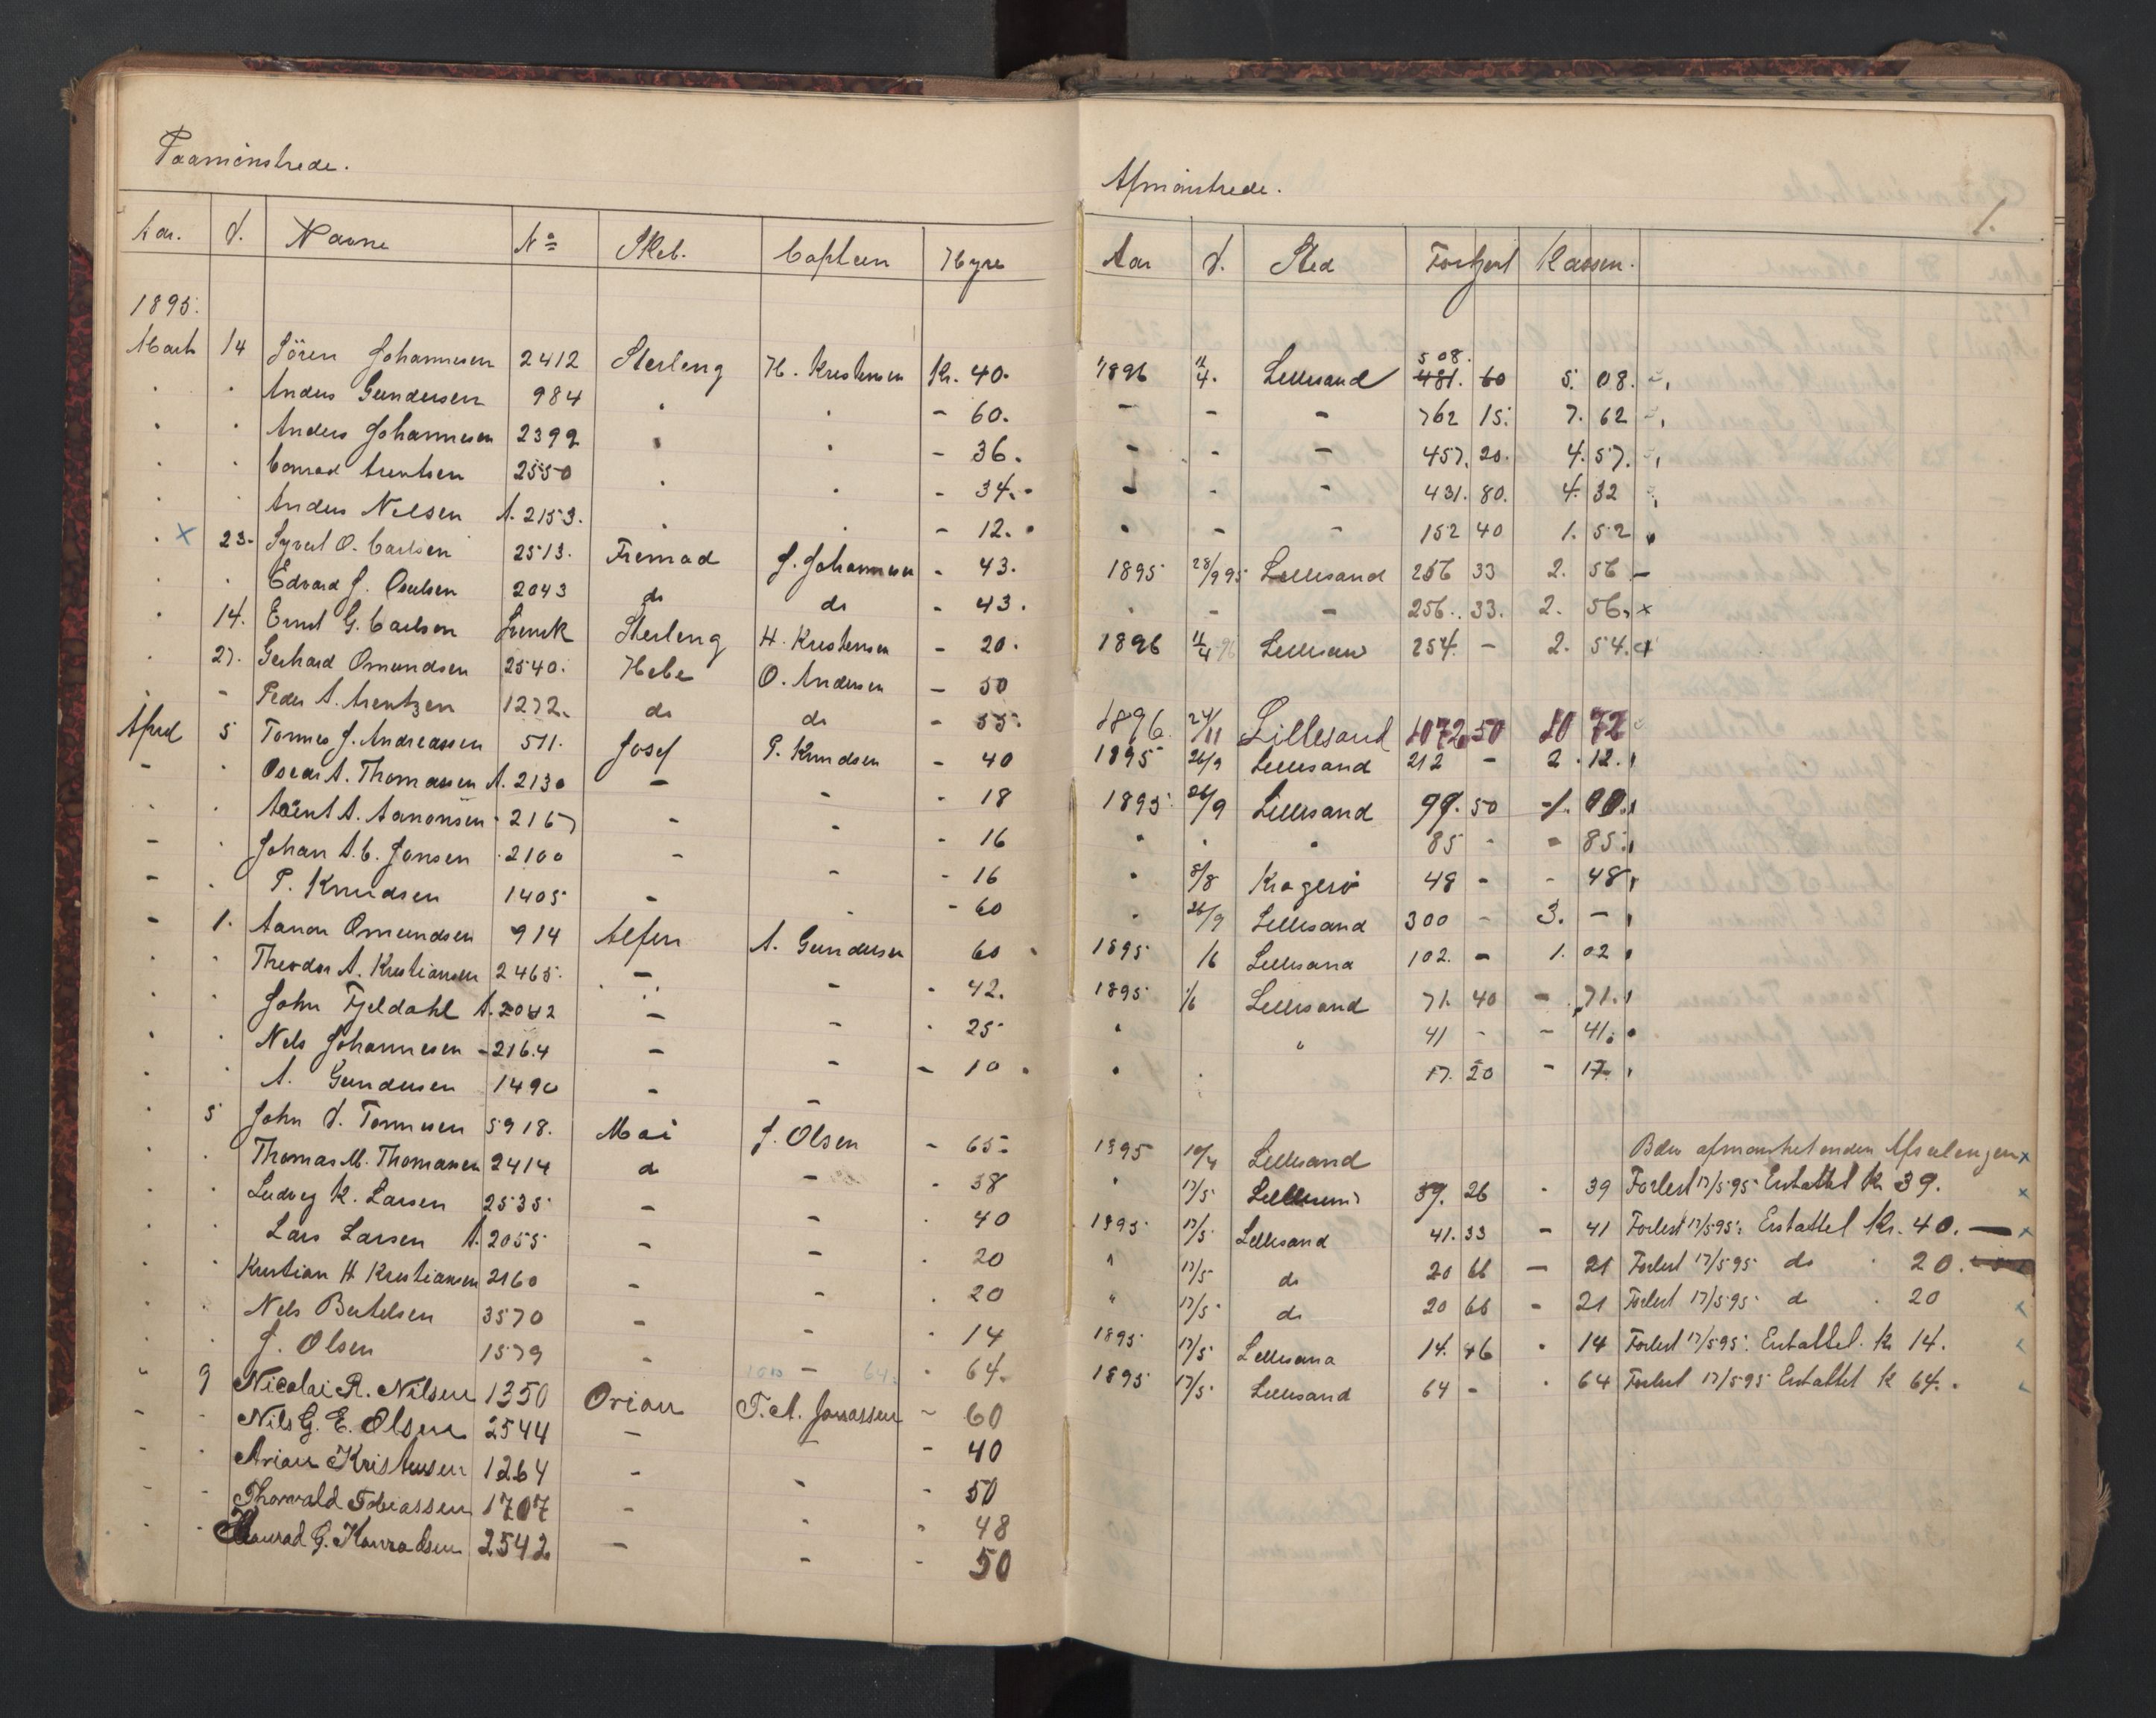 Paamönstrede.
Aar. d. Navne No Skib. Captein Hyre
1895.
March 14 Jören Johannesen 2412 Sterling H. Kristensen Kr. 40.
" " Anders Gundersen 984 " " - 60.
" " Anders Johannesen 2392 " " - 36.
" " Conrad Arentsen 2550 " " - 34.
" " Anders Nilsen A. 2153. " " - 12.
" x 23. Syvert O. Carlsen 2513. Fremad J. Johannesen - 43.
" " Edvard J. 2043 do do - 43.
" 14. Ernst G. Carlsen Svensk Sterling H. Kristensen - 20.
" 27. Gerhard Omundsen 2540. Hebe O. Andersen - 50
" - Peder A. Arentzen 1272. do do - 55.
April 5 Tönnes J. Andreassen 511. Josef P. Knudsen - 40
- " Oscar A. Thomassen A. 2130 - - - 18
" " A. Aanonsen - 2167 - - - 16
- " Johan A. C. Jensen - 2100 - - - 16
- " P. Knudsen 1405 - - - 60
- 1. Aanon Omundsen 914 Alfen A. Gundersen 60
" " Theodor A. Kristiansen 2465. - - - 42.
" " John Fjeldahl A. 2042 - - - 25
" " Nils Johannesen - 2164 - - - 10
" " A. Gundersen 1490 - -
" 5 John d. Tönnesen 5918. Mai J. Olsen - 65
" " Thomas M. Thomassen 2414 do - - 38
" " Ludvig K. Larsen 2535 - - - 40
" " Lars Larsen A. 2055 - - - 20
" " Kristian H Kristiansen 2160 - - - 20
" " Nils Bertelsen 3570 - - - 14
" " J. Olsen 1579 - - - 64.
" 9 Nicolai R. Nilsen 1350 Orion T. A. Jonassen - 60
- - Nils G. E. Olsen 2544 - - - 40
- " Arian Kristensen 1264 - - - 50
- - Thorvald Tobiassen 1707 - - - 48
- - Konrad G. Konradsen 2542 - - - 50
Afmönstrede.
1.
Aar d. Sted Fortjent Kassen.
508.
1896 11/4. Lillesand 481. 60 5. 08.
- - - 762 15. 7. 62
- - - 457. 20. 4. 57.
- - - 431. 80. 4. 32
" - - 152 40 1. 52
1895 28/9 95 Lillesand 256 33 2. 56 -
" - - 256. 33. 2. 56. x
1896 11/4 96 Lillesand 254. - 2. 54. x
1896. 24/11 Lillesand 1072 50 10 72
1895 26/9 Lillesand 212 - 2. 12.
1895. 26/9 Lillesand 99. 50 1. 00.
" " " 85 - - 85.
" 8/8 Kragerö 48 - - 48
" 26/9 Lillesand 300 - 3. -
1895 1/6 Lillesand 102. - 1. 02
1895 1/6 Lillesand 71. 40 - 71.
" " 41 - - 41.
" " 17. 20 - 17.
1895 Lillesand Blev afmönstret x
" 17/5 Lillesand 39. 26 " 39 Forlist 17/5 95 Erstattet Kr 39. x
1895. 17/5 Lillesand 41. 33 - 41 Forlist 17/5 95. Erstattet Kr. 40. - x
" 17/5 do 20 66 - 21 Forlist 17/5 95 do " 20.
" 17/5 do 20 66 - 21 Forlist 17/5 95 do " 20
1895 17/5 Lillesand 14. 46 " 14 Forlist 17/5 95. Erstattet. Kr 14.
1895 17/5 Lillesand 64 - " 64 Forlist 17/5 95 Erstattet K 64.